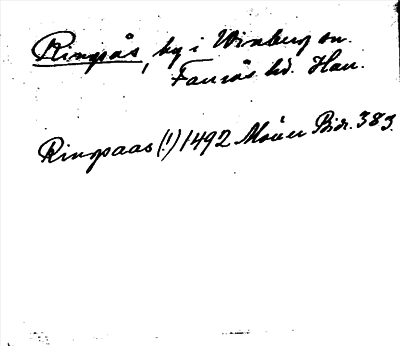 Ringsås, by i Vinberg sn.
Faurås hd. Hall.
Ringpaas (!) 1492 Molier Bidr. 383.